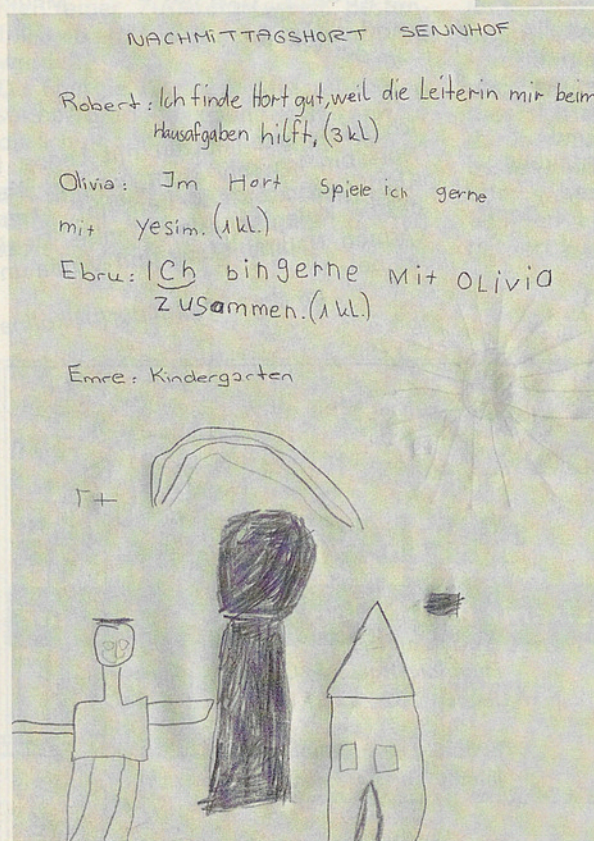 NACHMITTAGSHORT SENNHOF
Robert: Ich finde Hort gut, weil die Leiterin mir beim
Hausafgaben hilft, (3 kl)
Olivia: Im Hort Spiele ich gerne
mit yesim. (1 kl.)
Ebru: ICh bingerne Mit OLiviO
Zusammen. (1 kl.)
Emre: Kindergarten